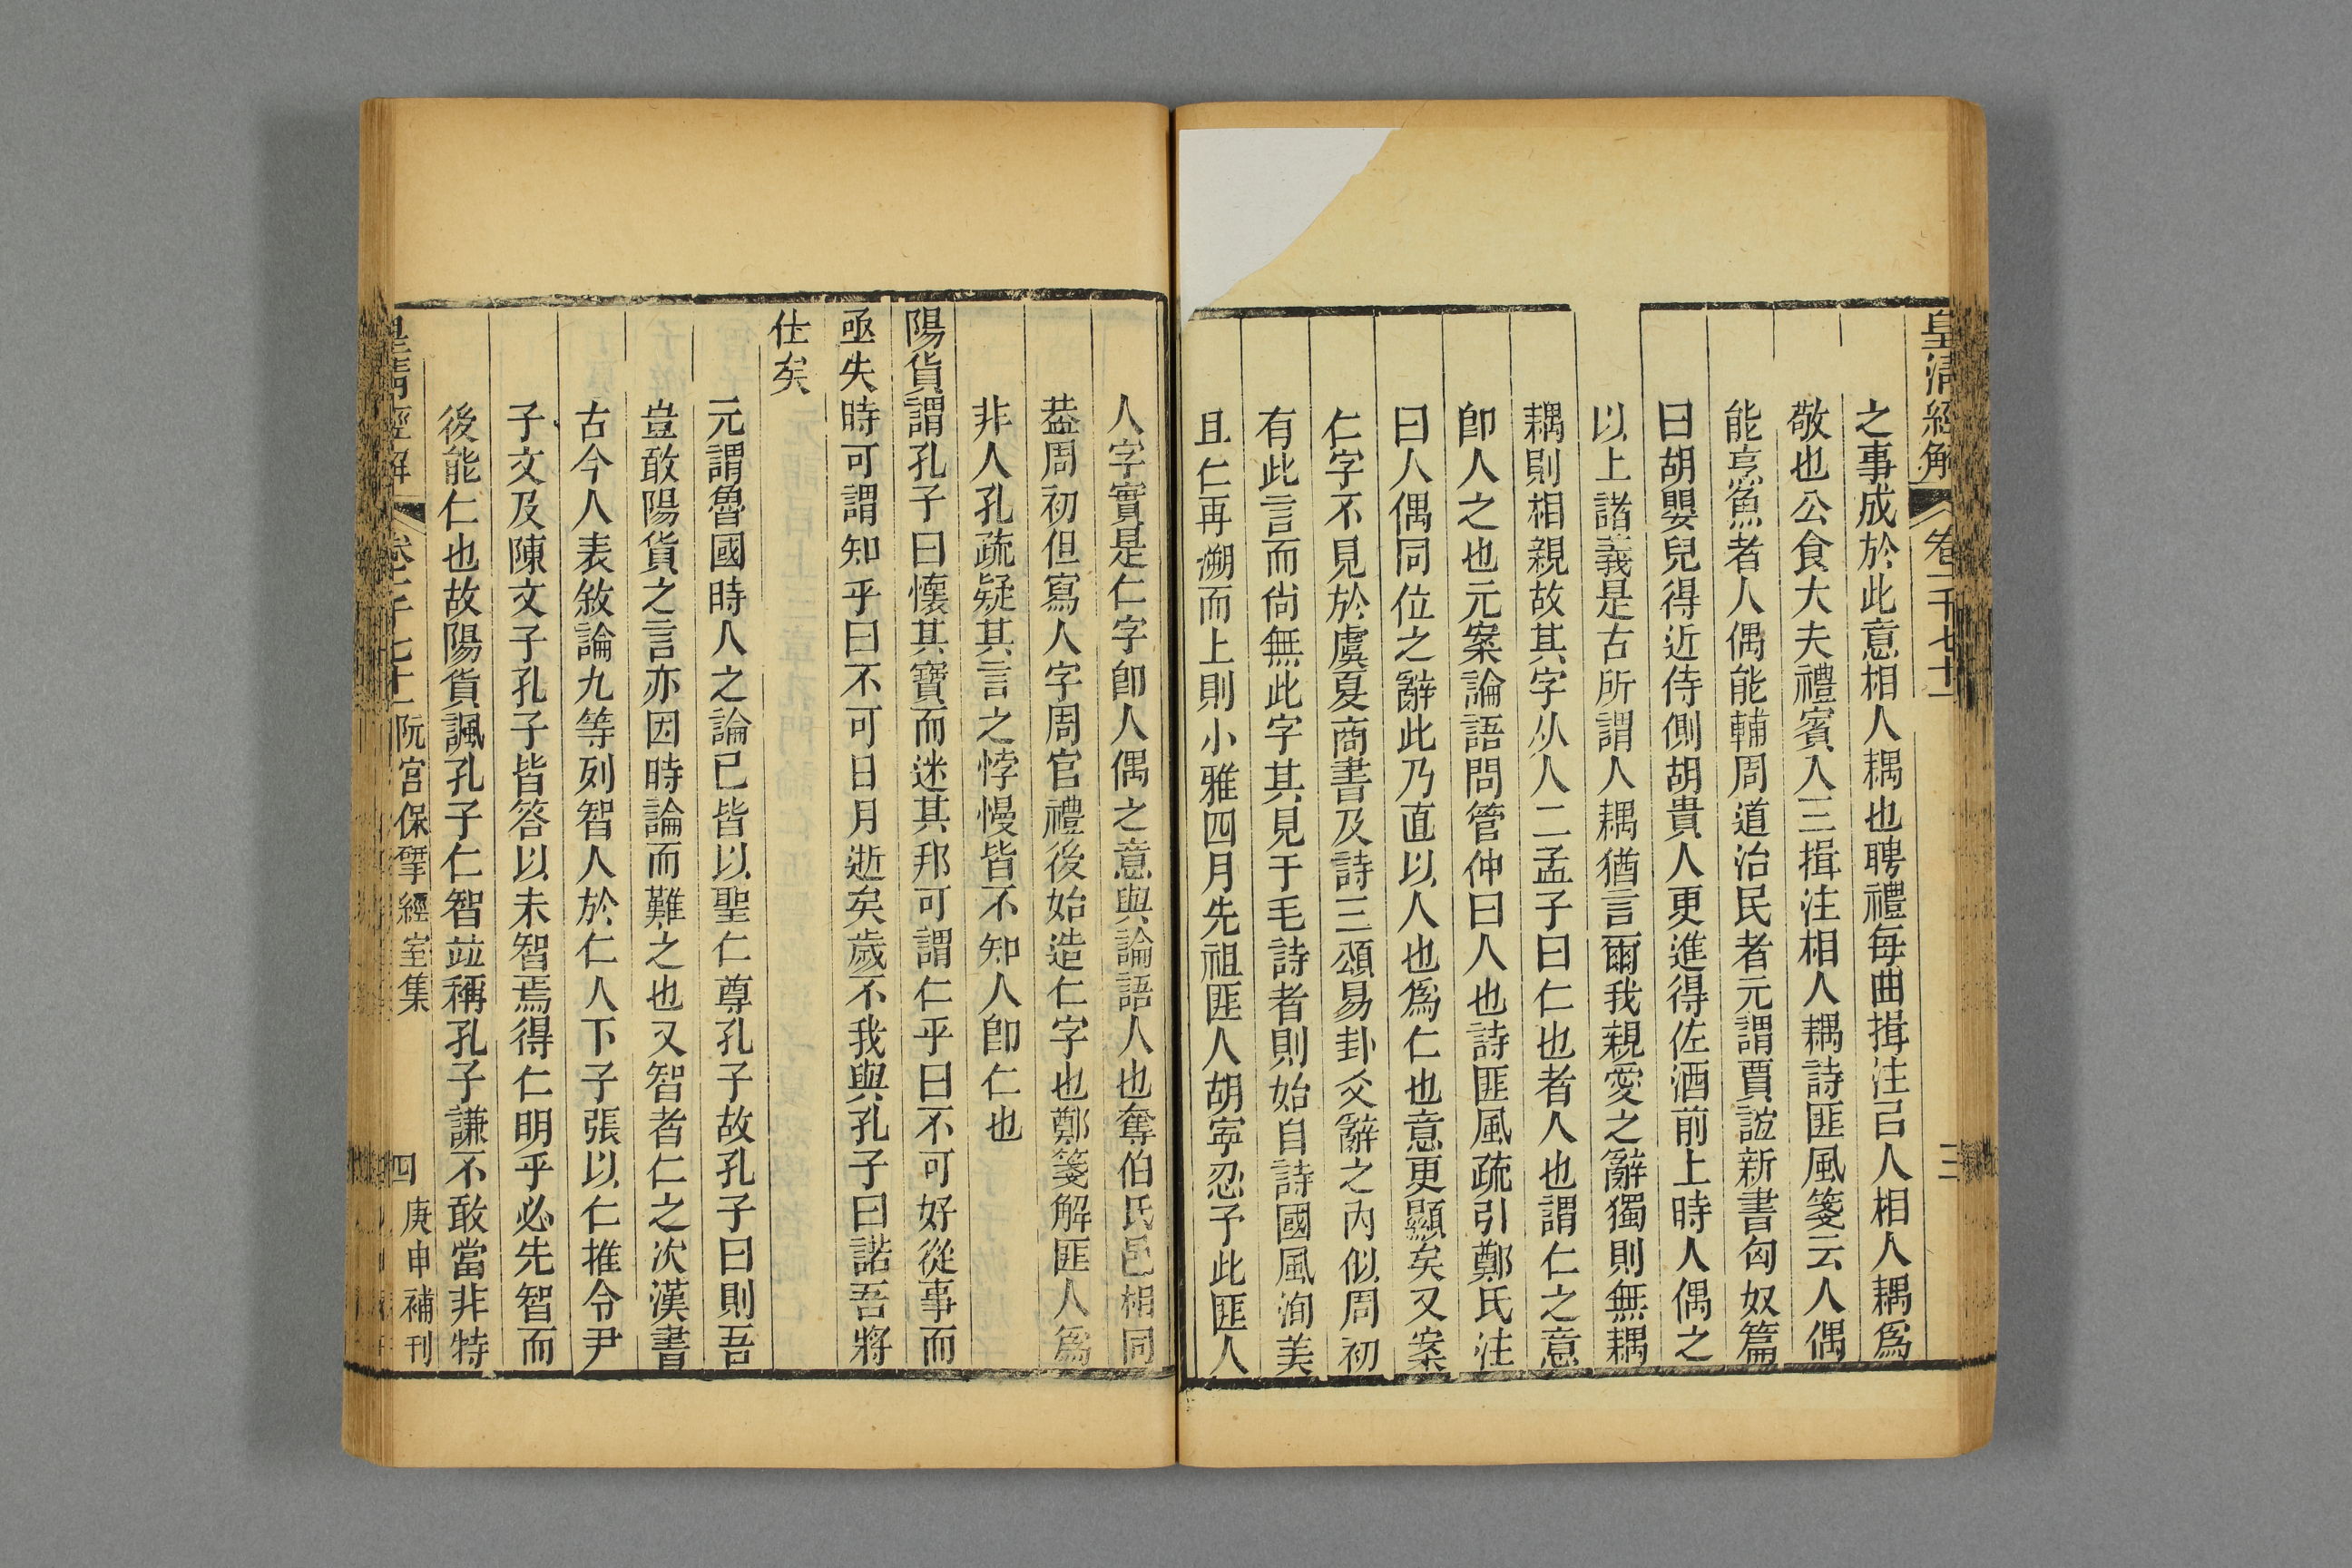 皇清經解 卷一千七十一 三
之事成於此意相人耦也聘禮每曲揖注曰人相人耦爲
敬也公食大夫禮賓入三揖注相人耦詩匪風箋云人偶
能亨䲣者人偶能輔周道治民者元謂賈誼新書匈奴篇
曰胡嬰兒得近侍側胡貴人更進得佐酒前上時人偶之
以上諸義是古所謂人耦猶言爾我親愛之辭獨則無耦
耦則相親故其字从人二孟子曰仁也者人也謂仁之意
卽人之也元案論語問管仲曰人也詩匪風疏引鄭氏注
曰人偶同位之辭此乃直以人也爲仁也意更顯矣又案
仁字不見於虞夏商書及詩三頌易卦爻辭之內似周初
有此言而尚無此字其見于毛詩者則始自詩國風洵美
且仁再溯而上則小雅四月先祖匪人胡寧忍予此匪人
人字實是仁字卽人偶之意與論語人也奪伯氏邑相同
葢周初但寫人字周官禮後始造仁字也鄭箋解匪人爲
非人孔疏疑其言之悖慢皆不知人卽仁也
陽貨謂孔子曰懷其寶而迷其邦可謂仁乎曰不可好從事而
亟失時可謂知乎曰不可日月逝矣歲不我與孔子曰諾吾將
仕矣
元謂魯國時人之論已皆以聖仁尊孔子故孔子曰則吾
豈敢陽貨之言亦因時論而難之也又智者仁之次漢書
古今人表敘論九等列智人於仁人下子張以仁推令尹
子文及陳文子孔子皆答以未智焉得仁明乎必先智而
後能仁也故陽貨諷孔子仁智竝稱孔子謙不敢當非特
皇清經解 卷一千七十一 阮宮保揅經室集 四 庚申補刊